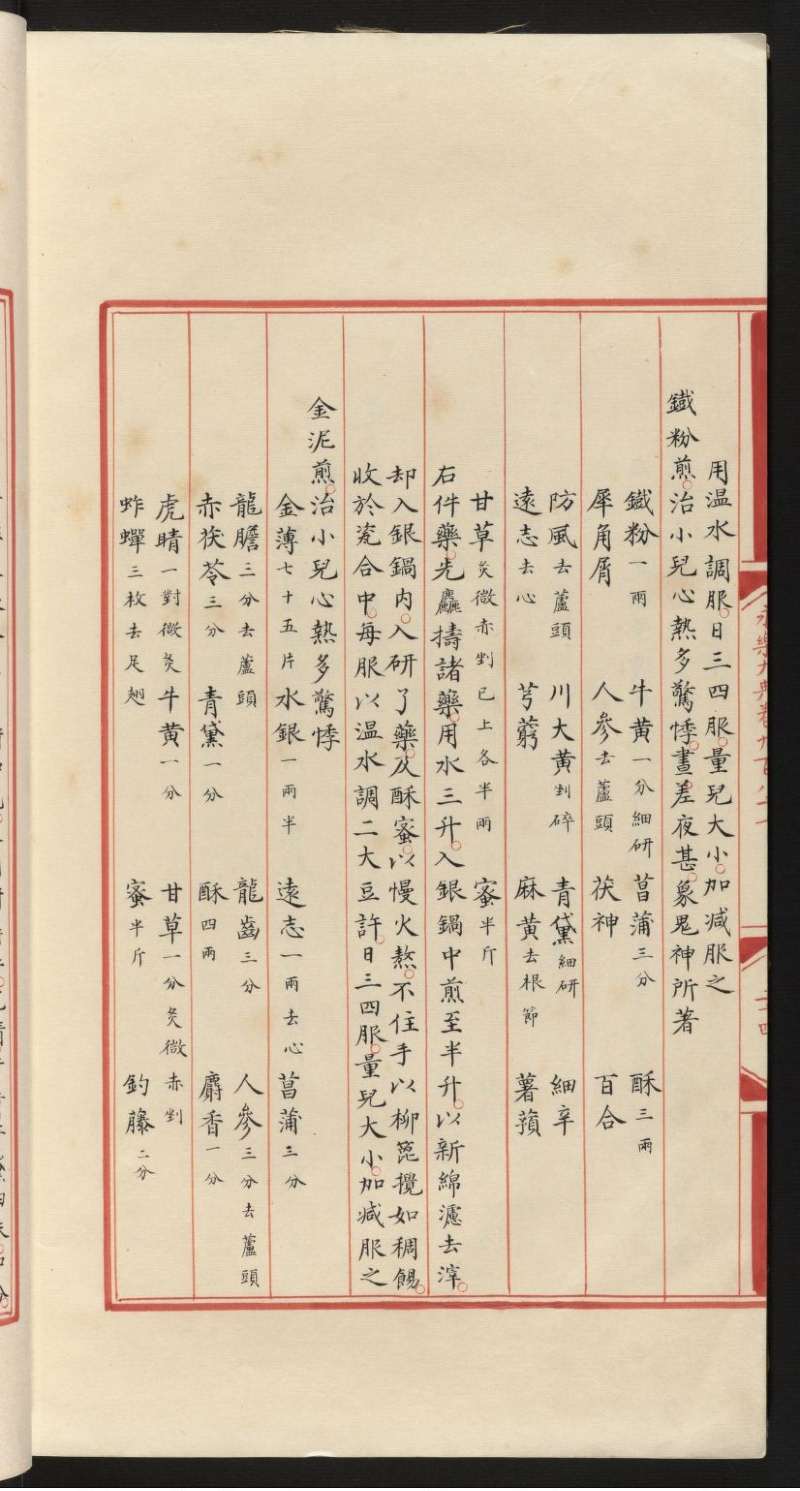 用温水調服。日三四服。量兒大小。加減服之
鐵粉煎。治小兒心熱多驚悸。晝差夜甚。象鬼神所著
鐵粉一兩 牛黃一分細研 菖蒲三分 酥三兩
犀角屑 人參去蘆頭 茯神 百合
防風去蘆頭 川大黃剉碎 青黛細研 細辛
遠志去心 芎藭 麻黃去根節 薯蕷
甘草炙微赤剉已上各半兩 蜜半斤
右件藥。先麤擣諸藥。用水三升。入銀鍋中煎至半升。以新綿濾去滓。
却入銀鍋内。入研了藥。及酥蜜。以慢火熬。不住手以柳篦攪如稠餳。
收於瓷合中。每服以温水調二大豆許。日三四服。量兒大小。加減服之
金泥煎。治小兒心熱多驚悸
金薄七十五片 水銀一兩半 遠志一兩去心 菖蒲三分
龍膽三分去蘆頭 龍齒三分 人參三分去蘆頭
赤茯苓三分 青黛一分 酥四兩 麝香一分
虎睛一對微炙 牛黃一分 甘草一分炙微赤剉
蚱蟬三枚去足翅 蜜半斤 釣藤二分
永樂大典卷九百八十